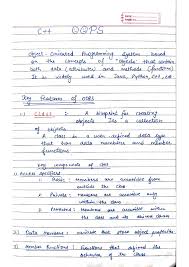 C++ OOPS
Object-Oriented Programming System based
on the concepts of "objects" that contain
both data (attributes) and methods (functions)
It is widely used in Java, Python, C++, etc
Key Features of OOPS
1) CLASS : A blueprint for creating
objects like a collection
of objects.
A class is a user defined data type
that has data members and member
functions
Key components of class
1) Access Specifiers
Public - Members are accessible from
outside the class
Private - Members are accessible only
within the class
Protected - Members are accessible within the
class and its derived classes
2) Data Members : variables that store object properties
3) Member Functions : Functions that defined the
behavior of the class